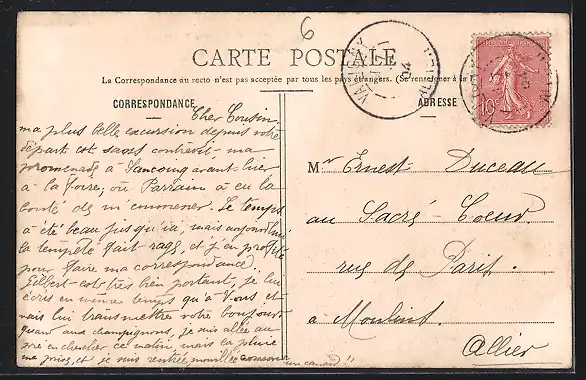 6
CARTE POSTALE
La Correspondance au recto n'est pas acceptée par tous les pays étrangers. (Se renseigner à la
CORRESPONDANCE
ADRESSE
REPUBLIQUE FRANÇAISE
10c
04
Cher Cousin,
ma plus belle excursion depuis votre
départ est sans contredit ma
promenade à Sancoins avant-hier
à la foire, où Parrain a eu la
bonté de m'emmener. Le temps
a été beau jusqu'ici, mais aujourd'hui
la tempête fait rage, et j'en profite
pour faire ma correspondance.
Gilbert est très bien portant, je lui
écris en même temps qu'à vous et
vais lui transmettre votre bonjour
quant aux champignons, je suis allée au
pré en chercher ce matin, mais la pluie
m'a prise, et je suis rentrée mouillée comme
un canard !!
Mr Ernest Duceau
au Sacré-Coeur
rue de Paris.
à Moulins.
Allier